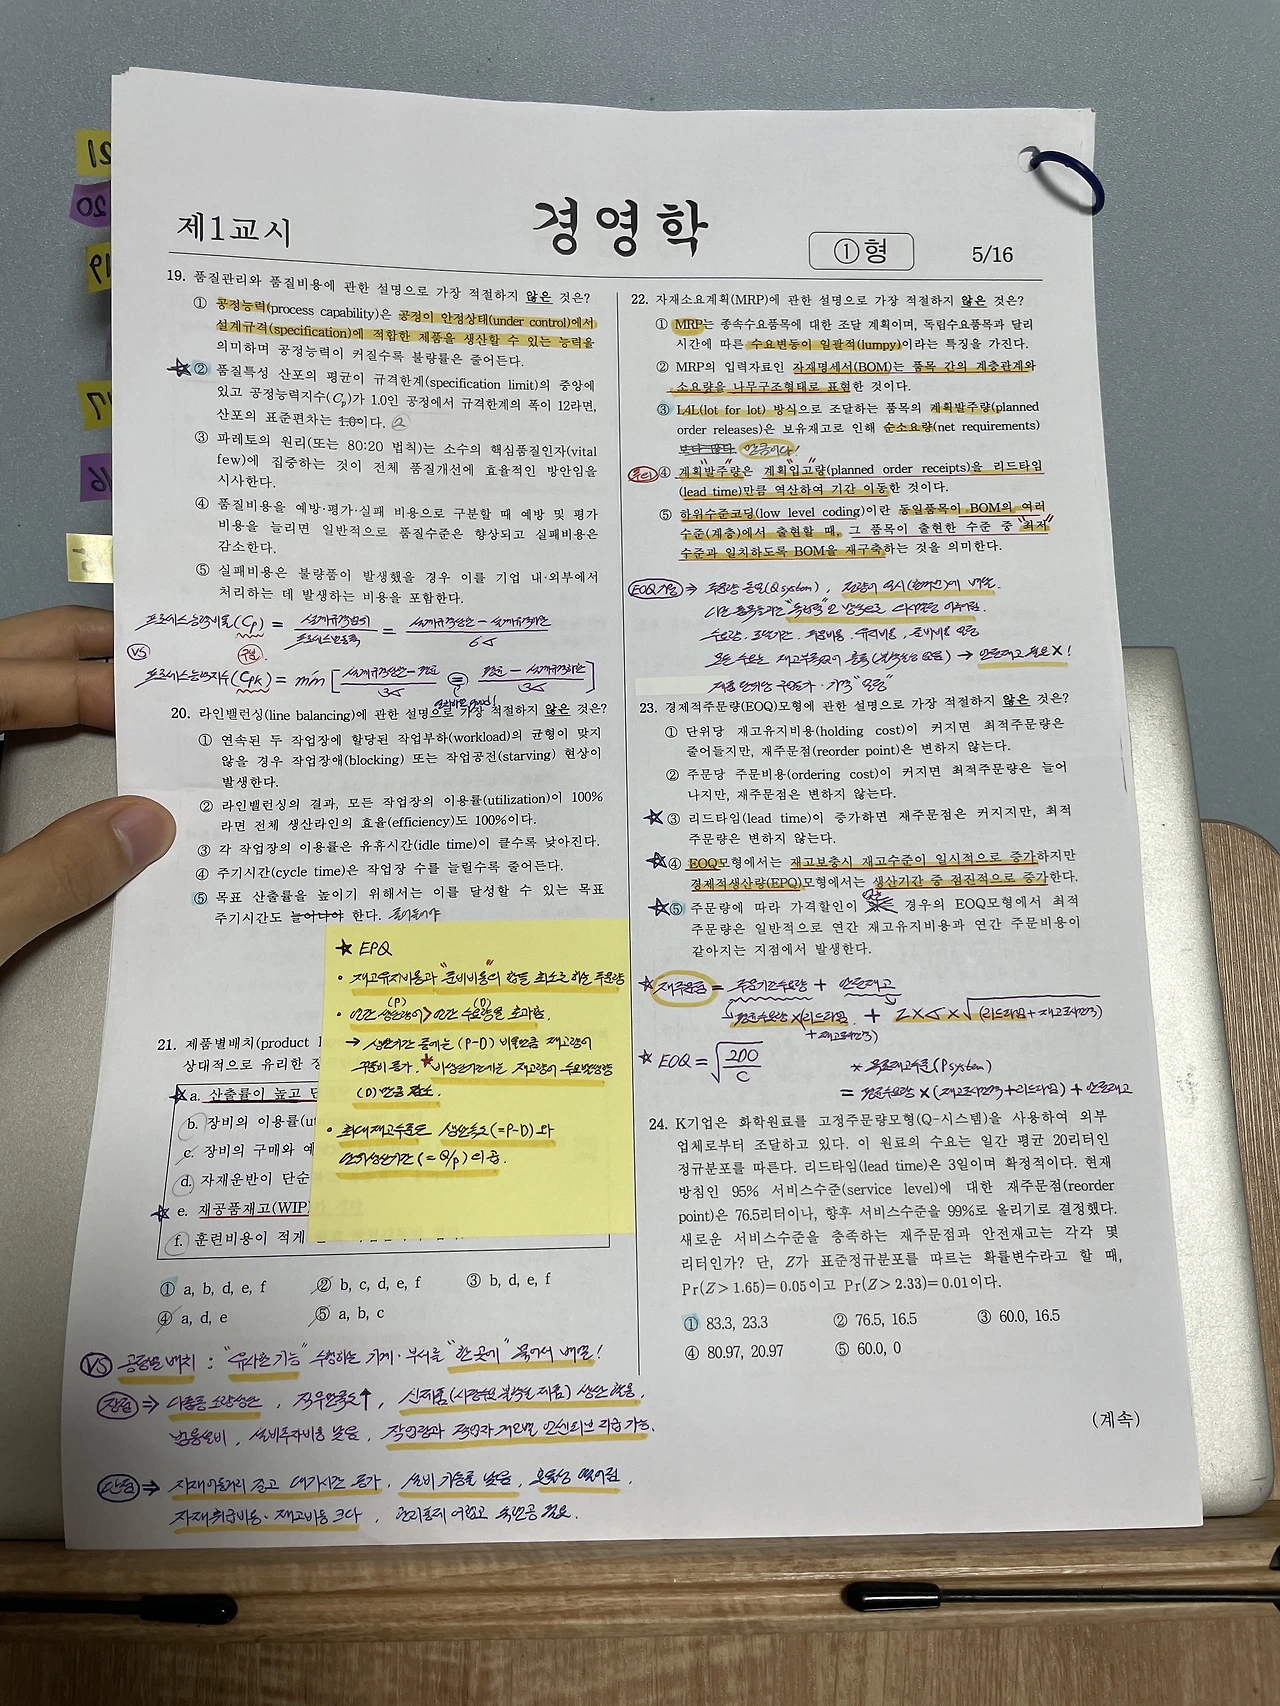 제1교시
경영학
①형
5/16
19. 품질관리와 품질비용에 관한 설명으로 가장 적절하지 않은 것은?
① 공정능력(process capability)은 공정이 안정상태(under control)에서
설계규격(specification)에 적합한 제품을 생산할 수 있는 능력을
의미하며 공정능력이 커질수록 불량률은 줄어든다.
② 품질특성 산포의 평균이 규격한계(specification limit)의 중앙에
있고 공정능력지수(Cp)가 1.0인 공정에서 규격한계의 폭이 12라면,
산포의 표준편차는 1.0이다. 2
③ 파레토의 원리(또는 80:20 법칙)는 소수의 핵심품질인자(vital
few)에 집중하는 것이 전체 품질개선에 효율적인 방안임을
시사한다.
④ 품질비용을 예방·평가·실패 비용으로 구분할 때 예방 및 평가
비용을 늘리면 일반적으로 품질수준은 향상되고 실패비용은
감소한다.
⑤ 실패비용은 불량품이 발생했을 경우 이를 기업 내·외부에서
처리하는 데 발생하는 비용을 포함한다.
프로세스능력비율(Cp) = 설계규격범위 / 프로세스변동폭 = 설계규격상한 - 설계규격하한 / 6σ
VS
프로세스능력지수(Cpk) = min [ 설계규격상한 - 평균 / 3σ = 평균 - 설계규격하한 / 3σ ]
20. 라인밸런싱(line balancing)에 관한 설명으로 가장 적절하지 않은 것은?
① 연속된 두 작업장에 할당된 작업부하(workload)의 균형이 맞지
않을 경우 작업장애(blocking) 또는 작업공전(starving) 현상이
발생한다.
② 라인밸런싱의 결과, 모든 작업장의 이용률(utilization)이 100%
라면 전체 생산라인의 효율(efficiency)도 100%이다.
③ 각 작업장의 이용률은 유휴시간(idle time)이 클수록 낮아진다.
④ 주기시간(cycle time)은 작업장 수를 늘릴수록 줄어든다.
⑤ 목표 산출률을 높이기 위해서는 이를 달성할 수 있는 목표
주기시간도 늘어나야 한다. 줄어들어야
★ EPQ
• 재고유지비용과 "준비비용"의 합을 최소로 하는 주문량
• 연간 생산량(P) > 연간 수요량(D)을 초과함.
→ 생산기간 동안에는 (P-D) 비율만큼 재고량이
꾸준히 증가. ★ 비생산기간에는 재고량이 수요량만큼
(D)만큼 감소.
• 최대재고수준은 생산속도(=P-D)와
생산기간(=Q/p)의 곱.
21. 제품별배치(product l
상대적으로 유리한 장
a. 산출률이 높고 단
b. 장비의 이용률(ut
c. 장비의 구매와 예
d. 자재운반이 단순
e. 재공품재고(WIP)
f. 훈련비용이 적게
① a, b, d, e, f ② b, c, d, e, f ③ b, d, e, f
④ a, d, e ⑤ a, b, c
VS 공정별 배치 : "유사한 기능" 수행하는 기계·부서를 "한 곳에" 묶어서 배열!
장점 ⇒ 다품종 소량생산, 직무만족도↑, 신제품(시장수요 불확실 제품) 생산 활용.
범용설비, 설비투자비용 낮음, 작업량과 작업자 개인별 인센티브 지급 가능.
단점 ⇒ 자재이동거리 길고 대기시간 증가, 설비 가동률 낮음, 효율성 떨어짐.
자재취급비용·재고비용 크다, 관리통제 어렵고 숙련공 필요.
22. 자재소요계획(MRP)에 관한 설명으로 가장 적절하지 않은 것은?
① MRP는 종속수요품목에 대한 조달 계획이며, 독립수요품목과 달리
시간에 따른 수요변동이 일괄적(lumpy)이라는 특징을 가진다.
② MRP의 입력자료인 자재명세서(BOM)는 품목 간의 계층관계와
소요량을 나무구조형태로 표현한 것이다.
③ L4L(lot for lot) 방식으로 조달하는 품목의 계획발주량(planned
order releases)은 보유재고로 인해 순소요량(net requirements)
보다 많다. 만큼이다!
④ 계획"발주"량은 계획"입고"량(planned order receipts)을 리드타임
(lead time)만큼 역산하여 기간 이동한 것이다.
⑤ 하위수준코딩(low level coding)이란 동일품목이 BOM의 여러
수준(계층)에서 출현할 때, 그 품목이 출현한 수준 중 "최저"
수준과 일치하도록 BOM을 재구축하는 것을 의미한다.
EOQ가정 ⇒ 주문량 동일(Q system), 전량이 일시(한꺼번)에 배달.
수요량·조달기간·주문비용·유지비용, 준비비용 일정
모든 수요는 재고부족없이 충족(불확실성 없음) → 안전재고 필요X!
제품 단위당 구입단가·가격 "일정"
23. 경제적주문량(EOQ)모형에 관한 설명으로 가장 적절하지 않은 것은?
① 단위당 재고유지비용(holding cost)이 커지면 최적주문량은
줄어들지만, 재주문점(reorder point)은 변하지 않는다.
② 주문당 주문비용(ordering cost)이 커지면 최적주문량은 늘어
나지만, 재주문점은 변하지 않는다.
③ 리드타임(lead time)이 증가하면 재주문점은 커지지만, 최적
주문량은 변하지 않는다.
④ EOQ모형에서는 재고보충시 재고수준이 일시적으로 증가하지만
경제적생산량(EPQ)모형에서는 생산기간 중 점진적으로 증가한다.
⑤ 주문량에 따라 가격할인이 경우의 EOQ모형에서 최적
주문량은 일반적으로 연간 재고유지비용과 연간 주문비용이
같아지는 지점에서 발생한다.
★ 재주문점 = 주문기간수요량 + 안전재고
평균수요량 × (리드타임 + 재고조사간격) + Z×σ×√(리드타임 + 재고조사간격)
★ EOQ = √2DO/C
* 목표재고수준(P system)
= 평균수요량 × (재고조사간격+리드타임) + 안전재고
24. K기업은 화학원료를 고정주문량모형(Q-시스템)을 사용하여 외부
업체로부터 조달하고 있다. 이 원료의 수요는 일간 평균 20리터인
정규분포를 따른다. 리드타임(lead time)은 3일이며 확정적이다. 현재
방침인 95% 서비스수준(service level)에 대한 재주문점(reorder
point)은 76.5리터이나, 향후 서비스수준을 99%로 올리기로 결정했다.
새로운 서비스수준을 충족하는 재주문점과 안전재고는 각각 몇
리터인가? 단, Z가 표준정규분포를 따르는 확률변수라고 할 때,
Pr(Z > 1.65)= 0.05이고 Pr(Z > 2.33)= 0.01이다.
① 83.3, 23.3 ② 76.5, 16.5 ③ 60.0, 16.5
④ 80.97, 20.97 ⑤ 60.0, 0
(계속)